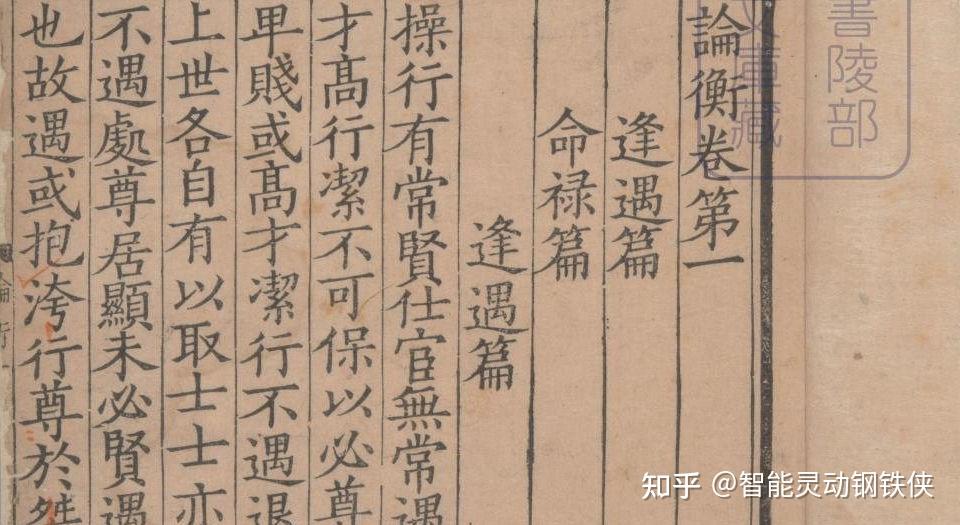 論衡卷第一
逢遇篇
命禄篇
逢遇篇
操行有常賢仕宦無常遇
才髙行潔不可保以必尊
卑賤或髙才潔行不遇退
上世各自有以取士士亦
不遇處尊居顯未必賢遇
也故遇或抱洿行尊於桀
書陵部
文庫藏
知乎 @智能灵动钢铁侠